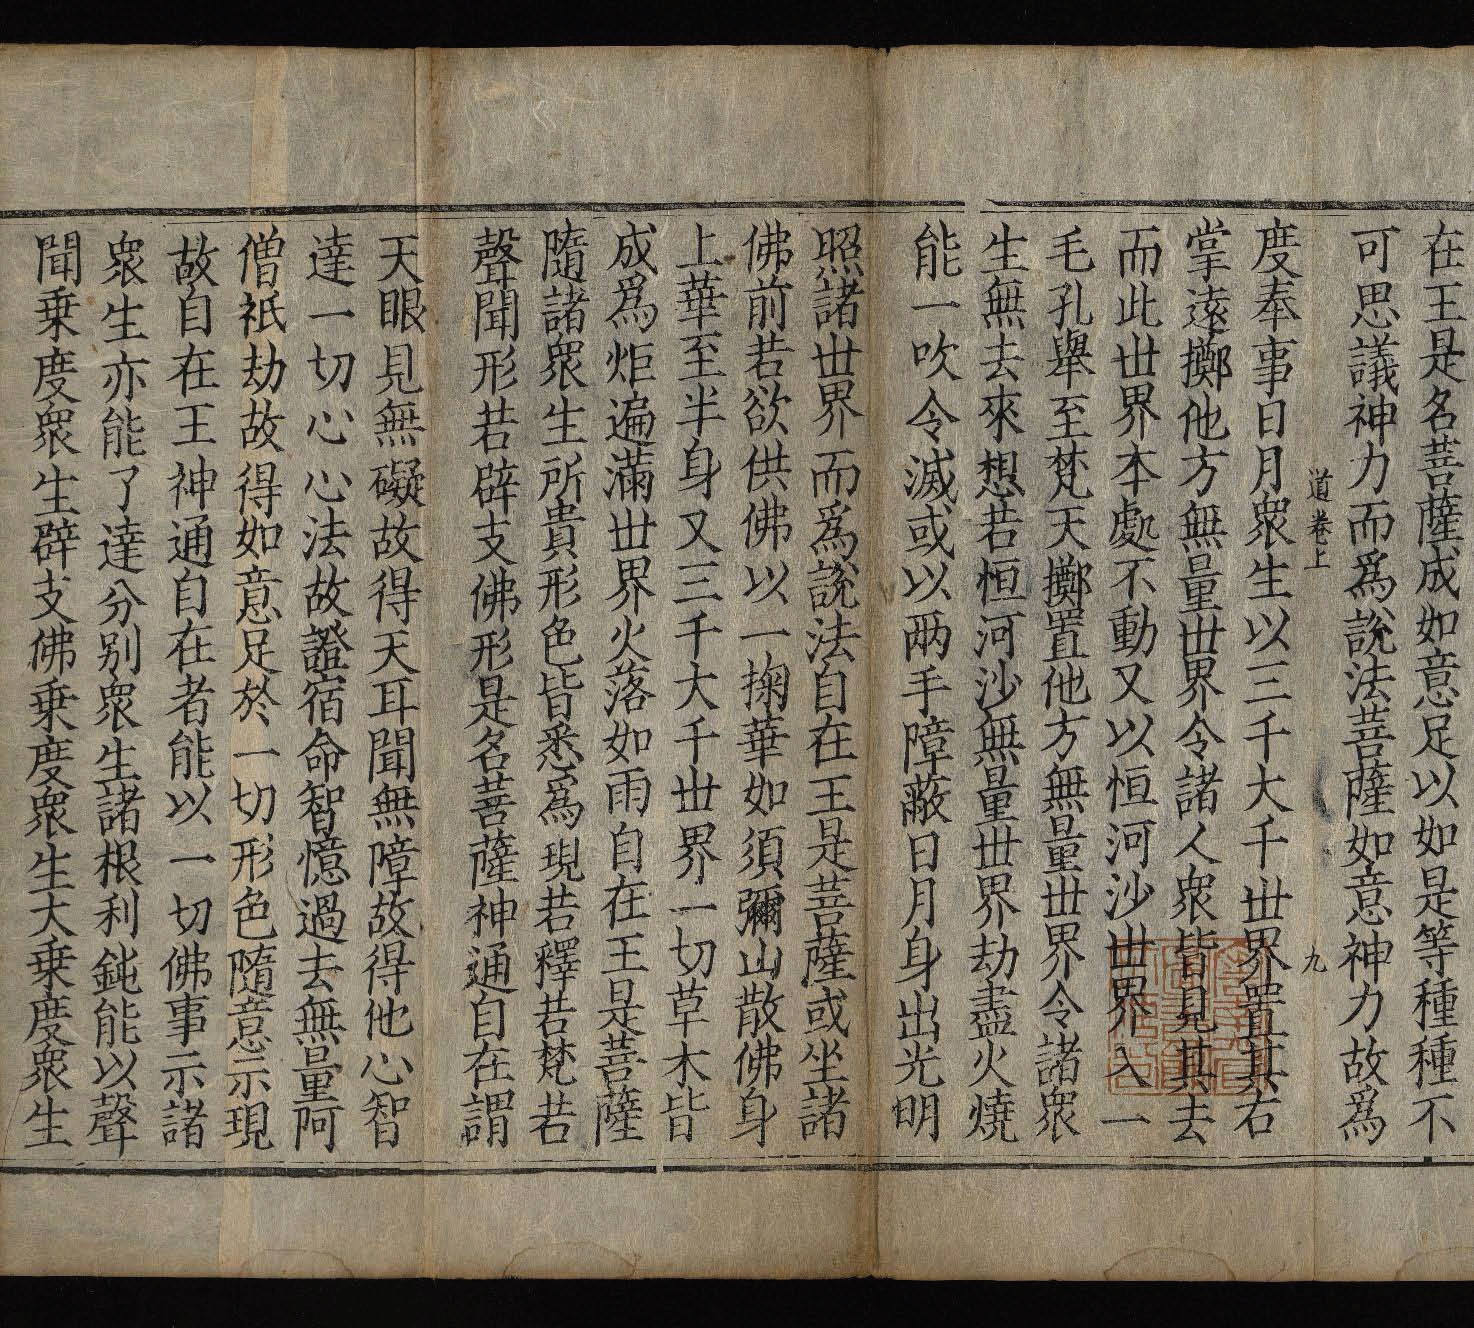 在王是名菩薩成如意足以如是等種種不
可思議神力而爲說法菩薩如意神力故爲
道卷上 九
度奉事日月衆生以三千大千世界置其右
掌遠擲他方無量世界令諸人衆皆見其去
而此世界本處不動又以恒河沙世界入一
毛孔舉至梵天擲置他方無量世界令諸衆
生無去來想若恒河沙無量世界劫盡火燒
能一吹令滅或以兩手障蔽日月身出光明
照諸世界而爲說法自在王是菩薩或坐諸
佛前若欲供佛以一掬華如須彌山散佛身
上華至半身又三千大千世界一切草木皆
成爲炬遍滿世界火落如雨自在王是菩薩
隨諸衆生所貴形色皆悉爲現若釋若梵若
聲聞形若辟支佛形是名菩薩神通自在謂
天眼見無礙故得天耳聞無障故得他心智
達一切心心法故證宿命智憶過去無量阿
僧祇劫故得如意足於一切形色隨意示現
故自在王神通自在者能以一切佛事示諸
衆生亦能了達分別衆生諸根利鈍能以聲
聞乗度衆生辟支佛乗度衆生大乗度衆生